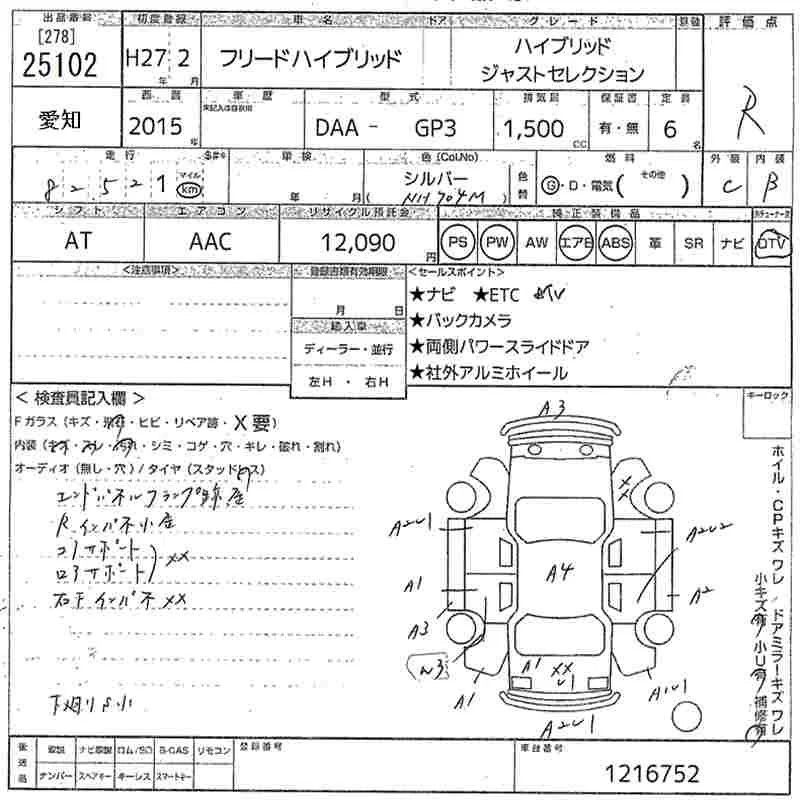 出品番号 初度登録 車名 ドア グレード 評価点
[278]
25102
H27年 2月
フリードハイブリッド
ハイブリッド
ジャストセレクション
R
西暦 車歴 型式 排気量 保証書 定員
愛知
2015年
未記入は自家用
DAA - GP3
1,500 CC
有・無
6名
走行 車検 色 (Col.No) 燃料 外装 内装
82521 マイル km
年 月
シルバー
( NH704M )
色替
G・D・電気( その他 )
C B
シフト エアコン リサイクル預託金 純正装備品
AT AAC 12,090円
PS PW AW エアB ABS 革 SR ナビ DTV
<注意事項>
登録書類有効期限
月 日
輸入車
ディーラー・並行
左H・右H
<セールスポイント>
★ナビ ★ETC
★バックカメラ
★両側パワースライドドア
★社外アルミホイール
<検査員記入欄>
Fガラス(キズ・飛石・ヒビ・リペア跡・X要)
内装(キズ・スレ・汚れ・シミ・コゲ・穴・キレ・破れ・割れ)
オーディオ(無し・穴)/タイヤ(スタッドレス)
エンドパネルフランプ跡座
R.インパネ小座
コアサポート
ロアサポート
) XX
右F インパネ XX
下廻りS小
キーロック
ホイル・CPキズワレ/ドアミラーキズワレ
小キズ有/小U有/補修有
A3
XX
A2U1
A2U2
A1
A4
A2
A3
W3
A1
A1
XX
U1
A1U1
A2U1
後送品
取説 ナビ取説 ロム/SD B-CAS リモコン
ナンバー スペアキー キーレス スマートキー
登録番号
車台番号
1216752